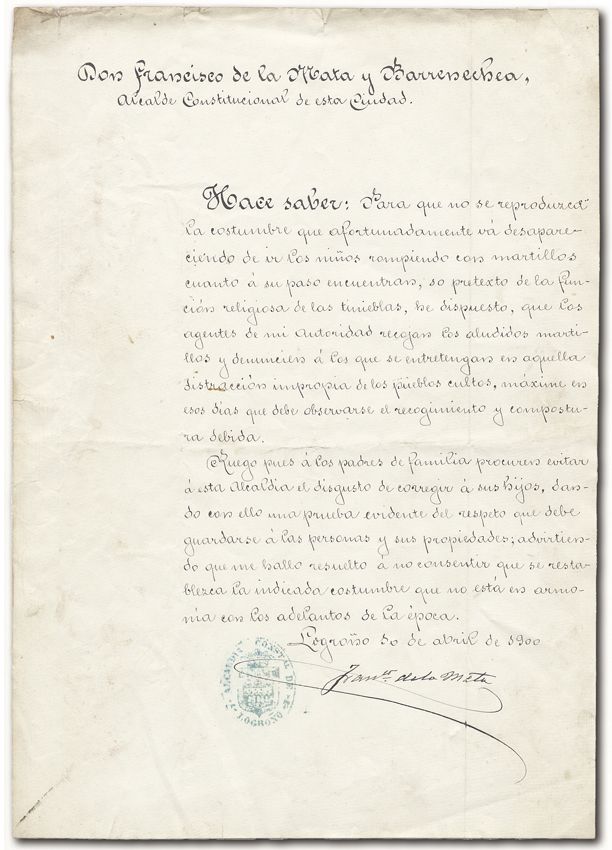 Don Francisco de la Mata y Barrenechea,
Alcalde Constitucional de esta Ciudad.
Hace saber: Para que no se reproduzca
la costumbre que afortunadamente vá desapare-
ciendo de ir los niños rompiendo con martillos
cuanto á su paso encuentran, so pretexto de la fun-
ción religiosa de las tinieblas, he dispuesto, que los
agentes de mi autoridad recojan los aludidos marti-
llos y denuncien á los que se entretengan en aquella
distracción impropia de los pueblos cultos, máxime en
esos días que debe observarse el recogimiento y compostu-
ra debida.
Ruego pues á los padres de familia procuren evitar
á esta Alcaldía el disgusto de corregir á sus hijos, dan-
do con ello una prueba evidente del respeto que debe
guardarse á las personas y sus propiedades; advirtien-
do que me hallo resuelto á no consentir que se resta-
blezca la indicada costumbre que no está en armo-
nía con los adelantos de la época.
Logroño 10 de abril de 1900
Fran.co de la Mata
ALCALDIA CONSTAL DE
LOGROÑO